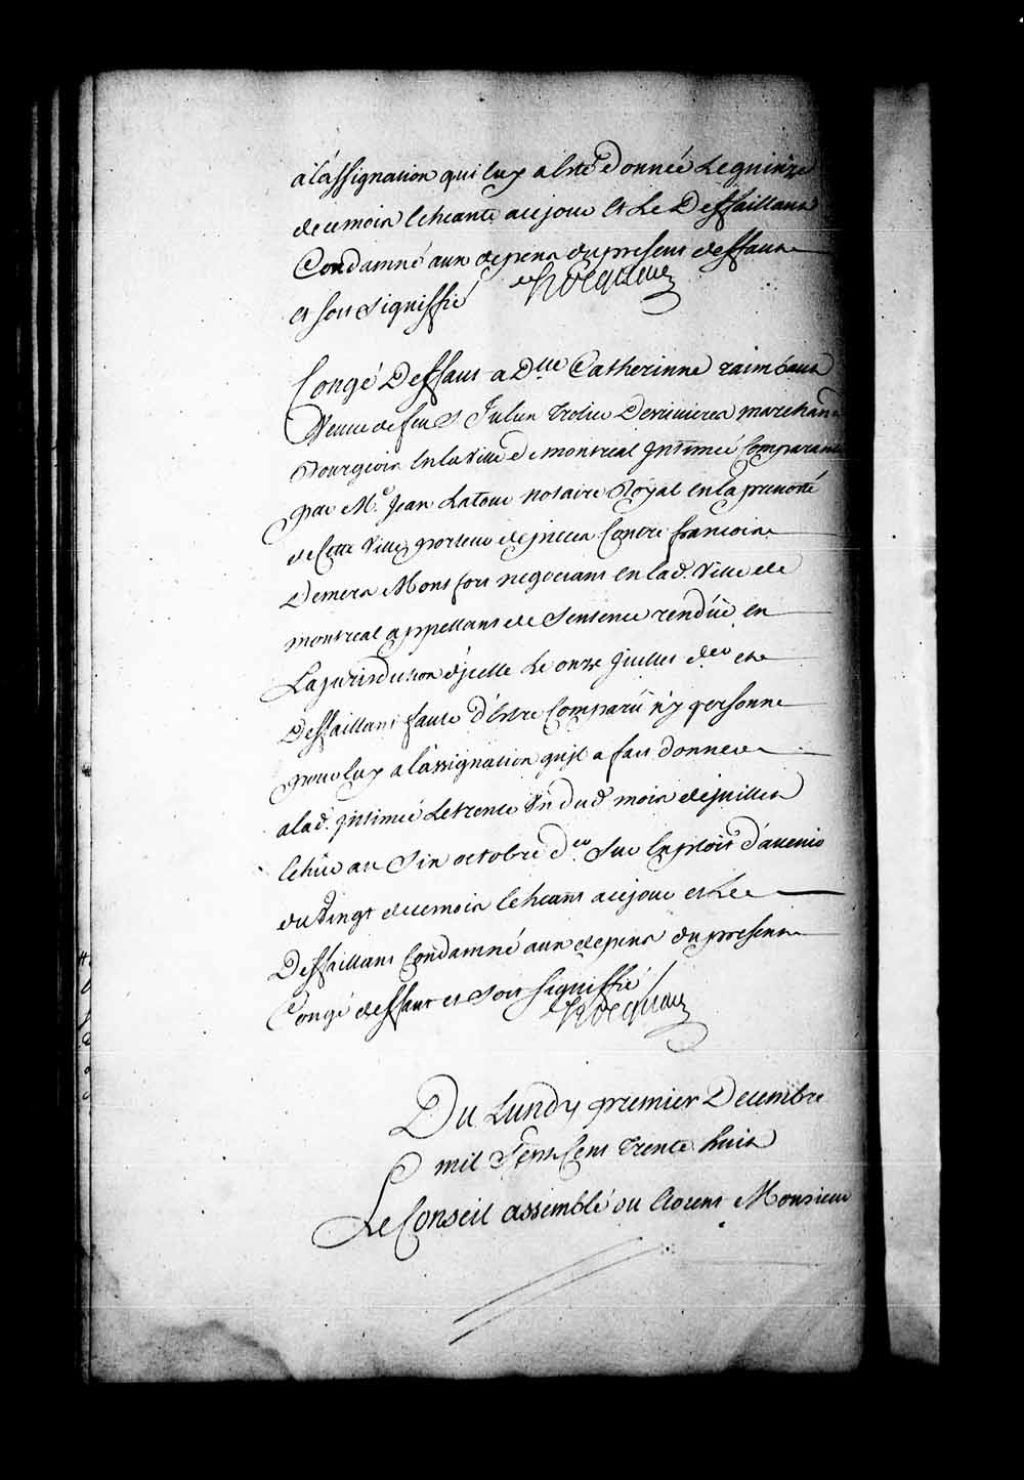 a l'assignation qui luy a este donnée Le quinze
de ce mois Echeante a ce jour Et Le Deffaillant
Condamné aux depens du present deffaut
et soit signiffié Hocquart
Congé Deffaut a Dlle Catherinne raimbault
Veuve de feu S Julien Trotier Desrivieres marchand
Bourgeois En la Ville de montreal Intimée Comparante
par Me Jean Latour notaire Royal en la prevosté
de Cette Ville porteur de pieces Contre francois
Demers Montfort negociant en lad. Ville de
montreal appellant de Sentence rendüe en
La jurisdiction d'jcelle Le onze Juillet der et
Deffaillant faute d'Estre Comparu n'y personne
pour luy a l'assignation qu'jl a fait donner
a lad. Intimée Le trente Un dud. mois de juillet
Echüe au Six octobre der Sur Exploit d'avenir
du Vingt de ce mois Echeant a ce jour et Le
Deffaillant Condamné aux depens du present
Congé deffaut et soit signiffié
Hocquart
Du Lundy premier Decembre
mil Sept Cent trente huit
Le Conseil assemblé ou Etoient Monsieur